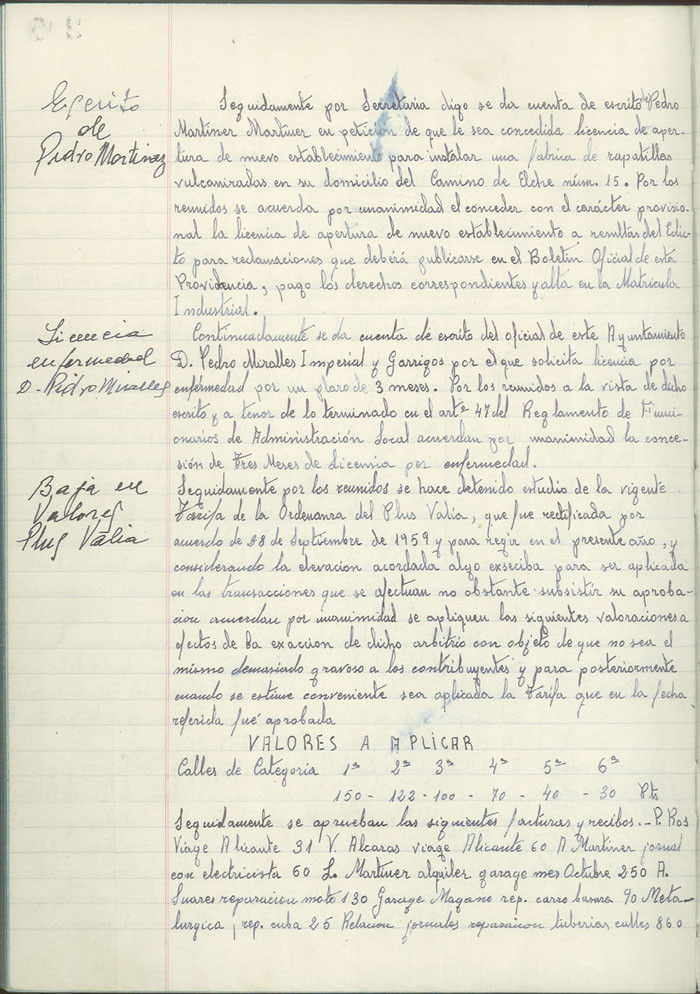 Escrito
de
Pedro Martinez
Seguidamente por Secretaria digo se da cuenta de escrito de Pedro
Martinez Martinez en petición de que le sea concedida licencia de aper-
tura de nuevo establecimiento para instalar una fabrica de zapatillas
vulcanizadas en su domicilio del Camino de Elche núm. 15. Por los
reunidos se acuerda por unanimidad el conceder con el carácter provisio-
nal la licencia de apertura de nuevo establecimiento a resultas del Edic-
to para reclamaciones que deberá publicarse en el Boletín Oficial de esta
Providencia, pago los derechos correspondientes y alta en la Matricula
Industrial.
Licencia
enfermedad
D. Pedro Miralles
Continuadamente se da cuenta de escrito del oficial de este Ayuntamiento
D. Pedro Miralles Imperial y Garrigos por el que solicita licencia por
enfermedad por un plazo de 3 meses. Por los reunidos a la vista de dicho
escrito y a tenor de lo terminado en el artº 47 del Reglamento de Funci-
onarios de Administración Local acuerdan por unanimidad la conce-
sión de Tres Meses de Licensia por enfermedad.
Baja en
Valores
Plus Valia
Seguidamente por los reunidos se hace detenido estudio de la vigente
Tarifa de la Ordenanza del Plus Valia, que fue rectificada por
acuerdo de 28 de Septiembre de 1959 y para regir en el presente año, y
considerando la elevacion acordada algo exseciba para ser aplicada
en las transacciones que se efectuan no obstante subsistir su aproba-
cion acuerdan por unanimidad se apliquen las siguientes valoraciones a
efectos de la exaccion de dicho arbitrio con objeto de que no sea el
mismo demasiado gravoso a los contribuyentes y para posteriormente
cuando se estime conveniente sea aplicada la Tarifa que en la fecha
referida fué aprobada
VALORES A APLICAR
Calles de Categoria 1ª 2ª 3ª 4ª 5ª 6ª
150 - 122 - 100 - 70 - 40 - 30 Pts
Seguidamente se aprueban las siguientes facturas y recibos. - P. Ros
Viage Alicante 31 V. Alcaras viage Alicante 60 A Martinez jornal
con electricista 60 L. Martinez alquiler garage mes Octubre 250 A.
Suares reparacion moto 130 Garage Magano rep. carro basura 90 Meta-
lurgica, rep. cuba 25 Relacion jornales reparacion tuberias calles 860